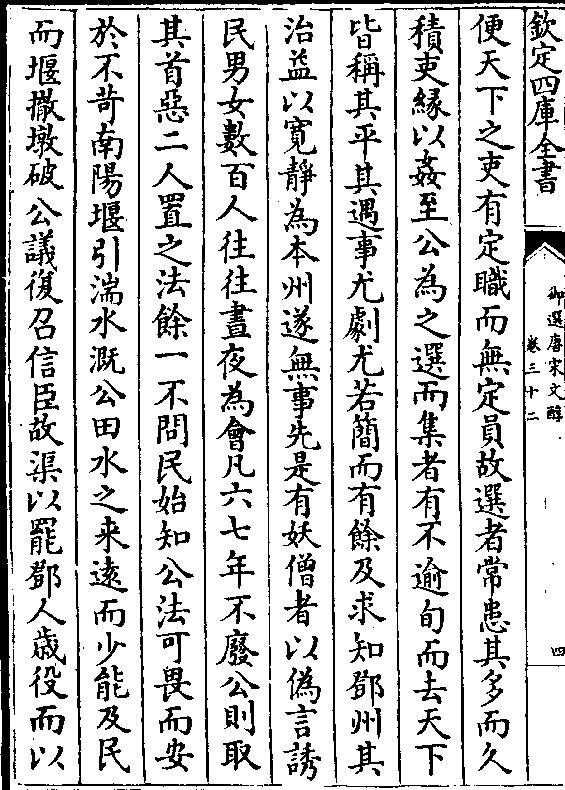 欽定四庫全書
御選唐宋文醇
卷三十二
四
便天下之吏有定職而無定員故選者常患其多而久
積吏緣以姦至公為之選而集者有不逾旬而去天下
皆稱其平其遇事尤劇尤若簡而有餘及求知鄧州其
治益以寬靜為本州遂無事先是有妖僧者以偽言誘
民男女數百人往往晝夜為會凡六七年不廢公則取
其首惡二人置之法餘一不問民始知公法可畏而安
於不苛南陽堰引湍水溉公田水之来逺而少能及民
而堰撒墩破公議復召信臣故渠以罷鄧人歲役而以